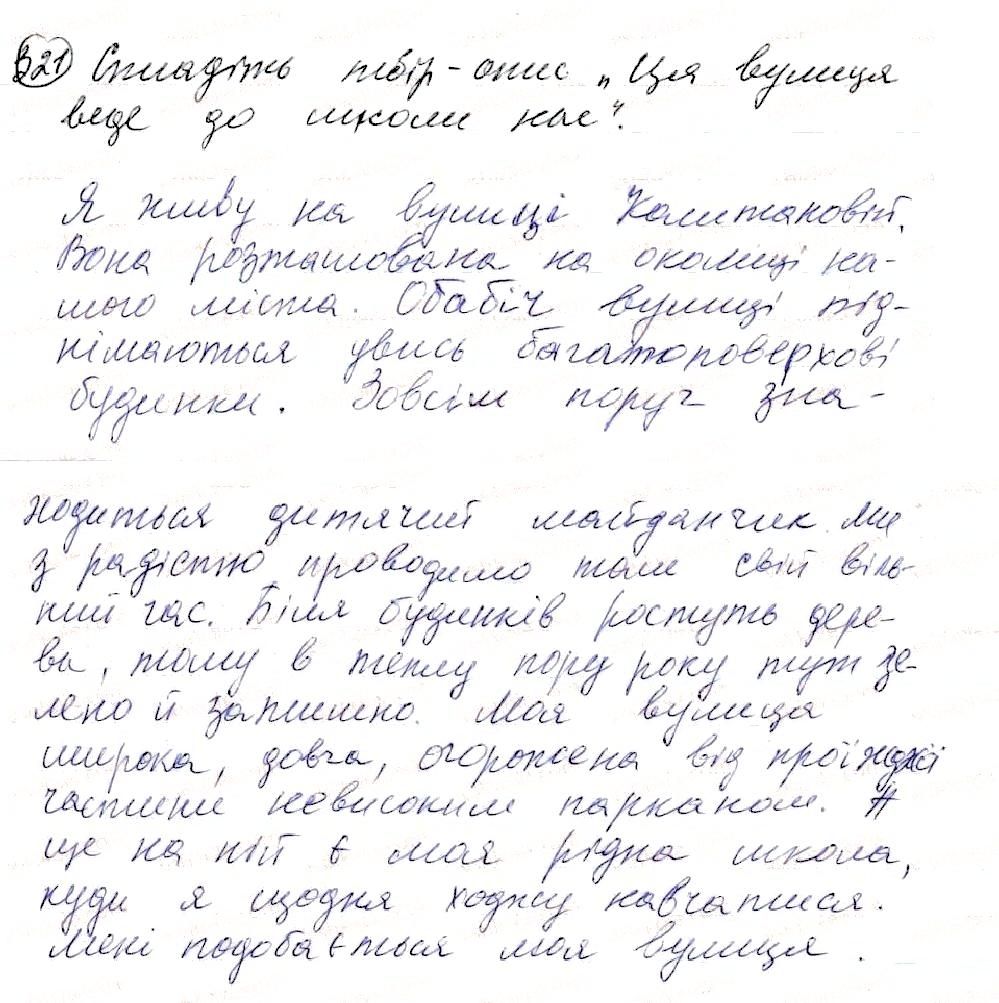 321 Складіть твір-опис „Ця вулиця
веде до школи нас".
Я живу на вулиці Каштановій.
Вона розташована на околиці на-
шого міста. Обабіч вулиці під-
німаються увись багатоповерхові
будинки. Зовсім поруч зна-
ходиться дитячий майданчик. Ми
з радістю проводимо там свій віль-
ний час. Біля будинків ростуть дере-
ва, тому в теплу пору року тут зе-
лено й затишно. Моя вулиця
широка, довга, огорожена від проїжджої
частини невисоким парканом. А
ще на ній є моя рідна школа,
куди я щодня ходжу навчатися.
Мені подобається моя вулиця.